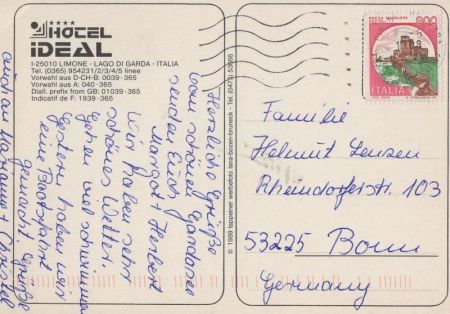 HOTEL
IDEAL
I-25010 LIMONE - LAGO DI GARDA - ITALIA
Tel. (0365) 954231/2/3/4/5 linee
Vorwahl aus D-CH-B: 0039-365
Vorwahl aus A: 040-365
Diall. prefix from GB: 01039-365
Indicatif de F: 1939-365
Herzliche Grüße
vom schönen Gardasee
senden Euch
Margot + Herbert
Wir haben sehr
schönes Wetter.
Gehen viel schwimmen
Gestern haben wir
eine Bootsfahrt
gemacht. Grüße
auch an Marianne + Christel
© 1989 tappeiner werbefoto lana-bozen-bruneck - Tel. (0473) 53666
800
ITALIA
Familie
Helmut Lenzen
Rheindorferstr. 103
53225 Bonn
Germany